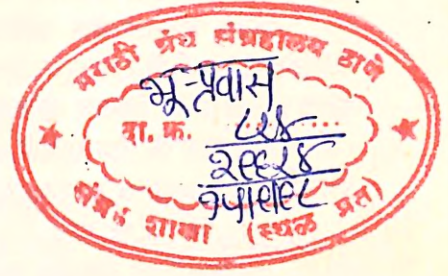 मराठी ग्रंथ संग्रहालय ठाणे
भू-प्रवास
दा. क. ८२४
२९६२४
१५|९|९८
संदर्भ शाखा (स्थळ प्रत)